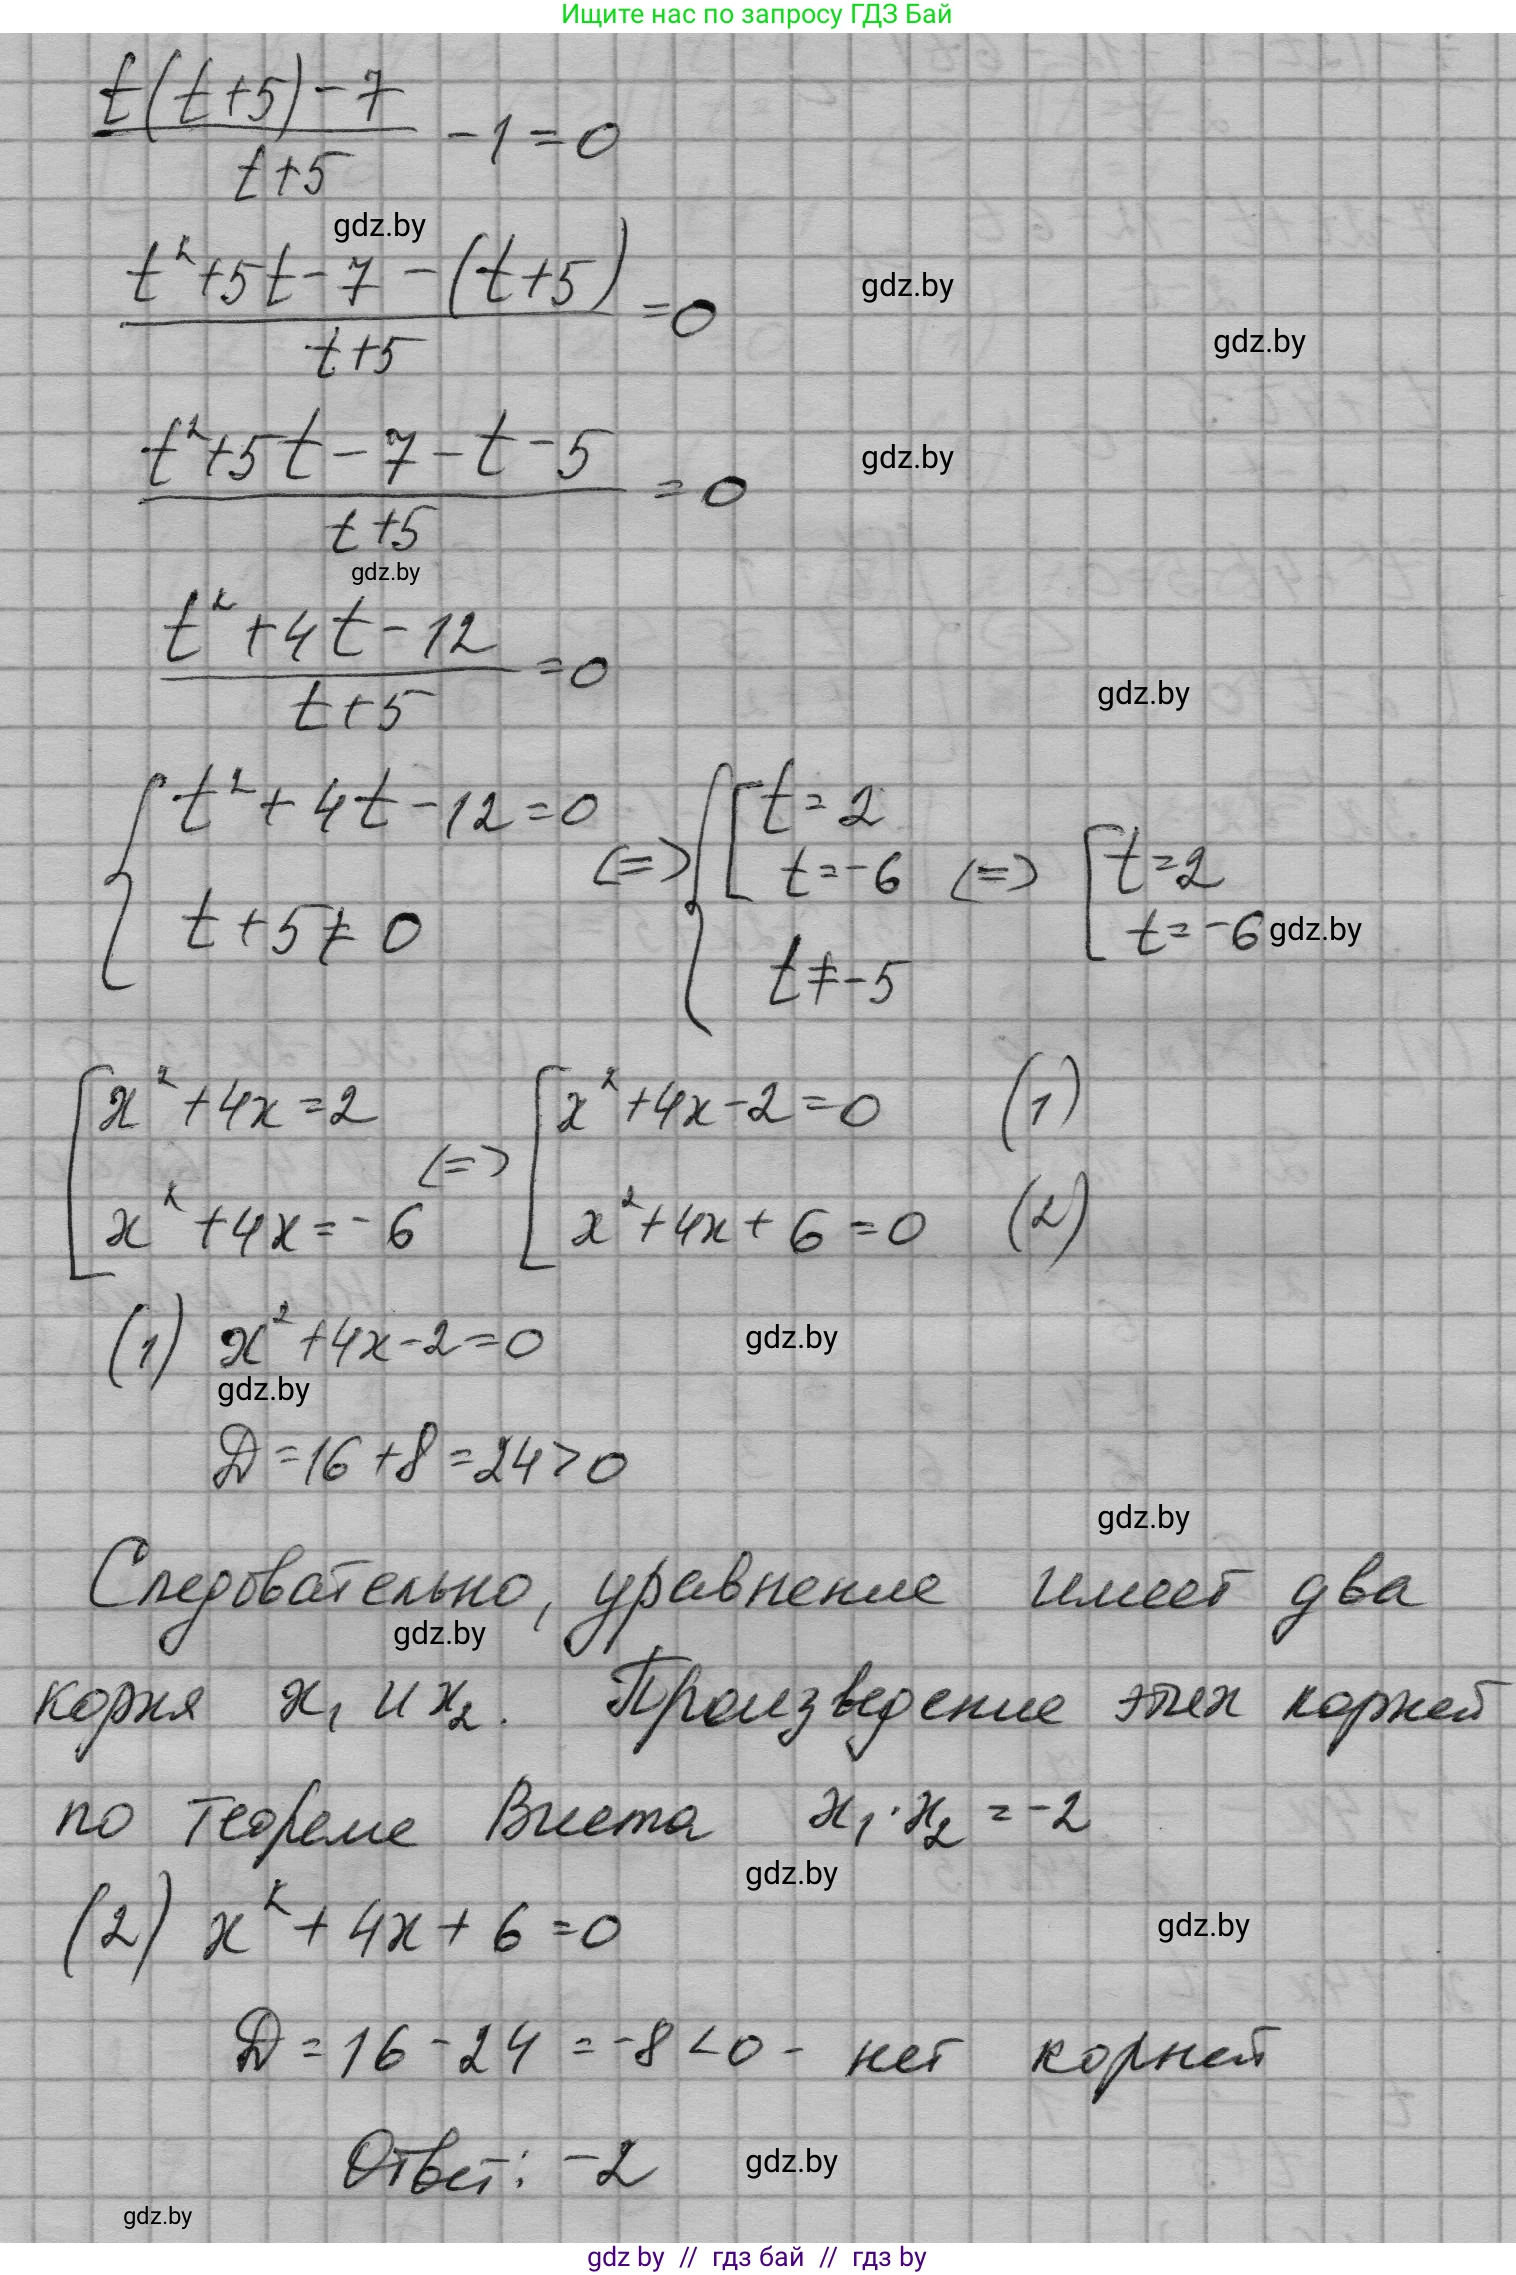 Ищите нас по запросу ГДЗ Бай
t(t+5)-7
t+5
-1=0
gdz.by
t²+5t-7-(t+5)
t+5
=0
gdz.by
gdz.by
t²+5t-7-t-5
t+5
=0
gdz.by
gdz.by
t²+4t-12
t+5
=0
gdz.by
{ t²+4t-12=0
t+5≠0
<=> { [ t=2
t=-6
t≠-5
<=> [ t=2
t=-6
gdz.by
[ x²+4x=2
x²+4x=-6
<=> [ x²+4x-2=0 (1)
x²+4x+6=0 (2)
(1) x²+4x-2=0
gdz.by
gdz.by
D=16+8=24>0
gdz.by
Следовательно, уравнение имеет два
gdz.by
корня x₁ и x₂. Произведение этих корней
по теореме Виета x₁·x₂=-2
gdz.by
(2) x²+4x+6=0
gdz.by
D=16-24=-8<0 - нет корней
Ответ: -2
gdz.by
gdz.by
gdz by // гдз бай // гдз by